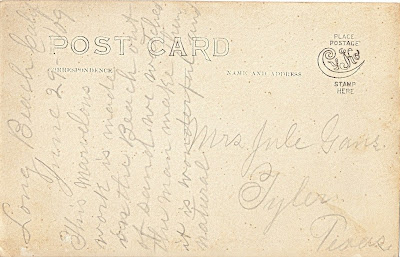 POST CARD
CORRESPONDENCE
NAME AND ADDRESS
PLACE
POSTAGE
STAMP
HERE
Long Beach Cal
June 29
This
work is made
on the Beach out
of sand we watched
the man make
it is wonderful and
natural
Mrs. Jule Gans
Tyler
Texas